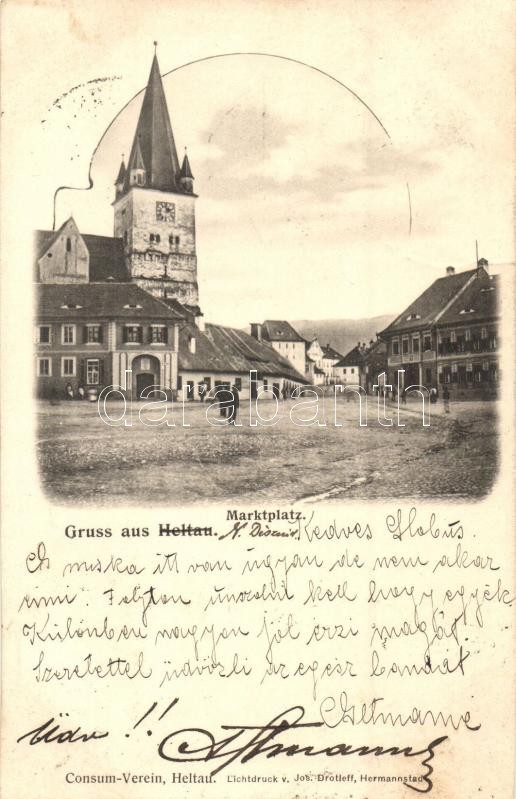 Marktplatz.
Gruss aus Heltau. N. Disznód
Kedves Globus.
A muska itt van ugyan de nem akar
enni. Folyton unszolni kell hogy egyék
Különben nagyon jól érzi magát.
Szeretettel üdvözli az egész bandát
Altmanné
Üdv !! Altmann
Consum-Verein, Heltau. Lichtdruck v. Jos. Drotleff, Hermannstadt
darabanth